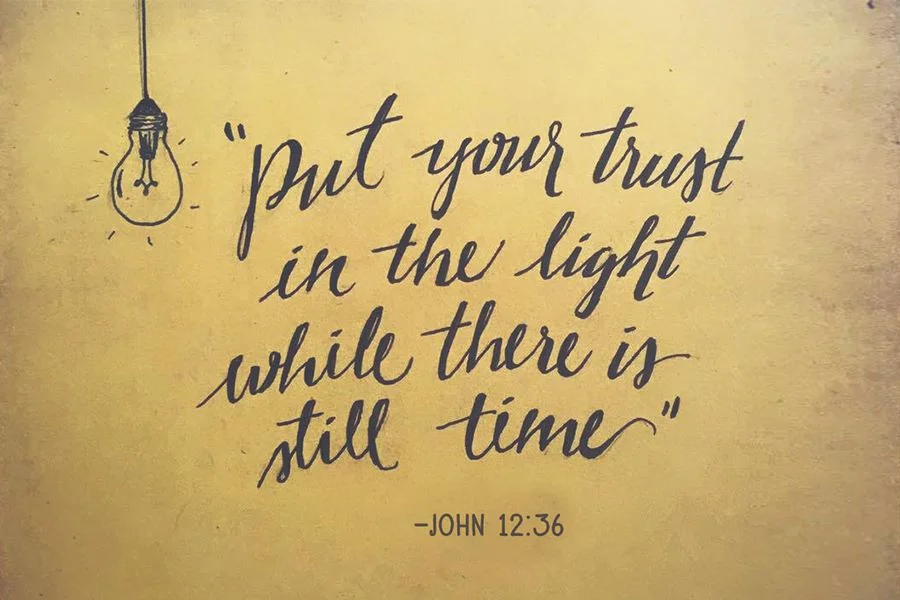 "Put your trust
in the light
while there is
still time"
-JOHN 12:36